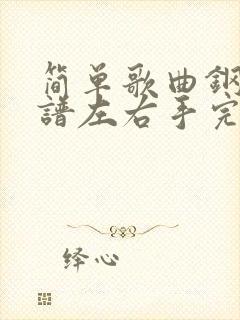 简单歌曲钢
譜左右手完
绎心